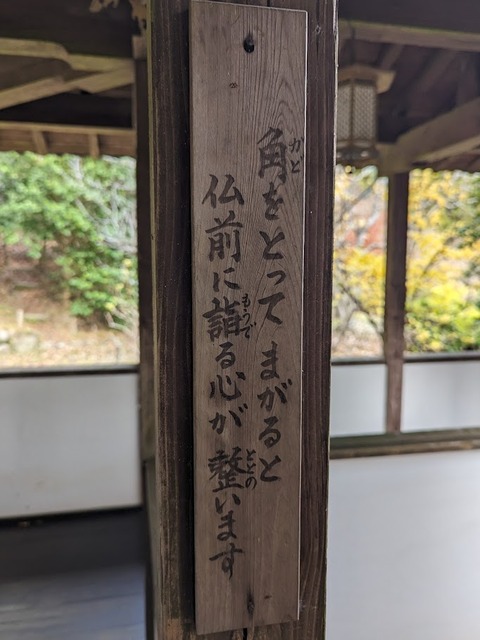 角をとってまがると
仏前に詣る心が整います
かど
もうで
ととの